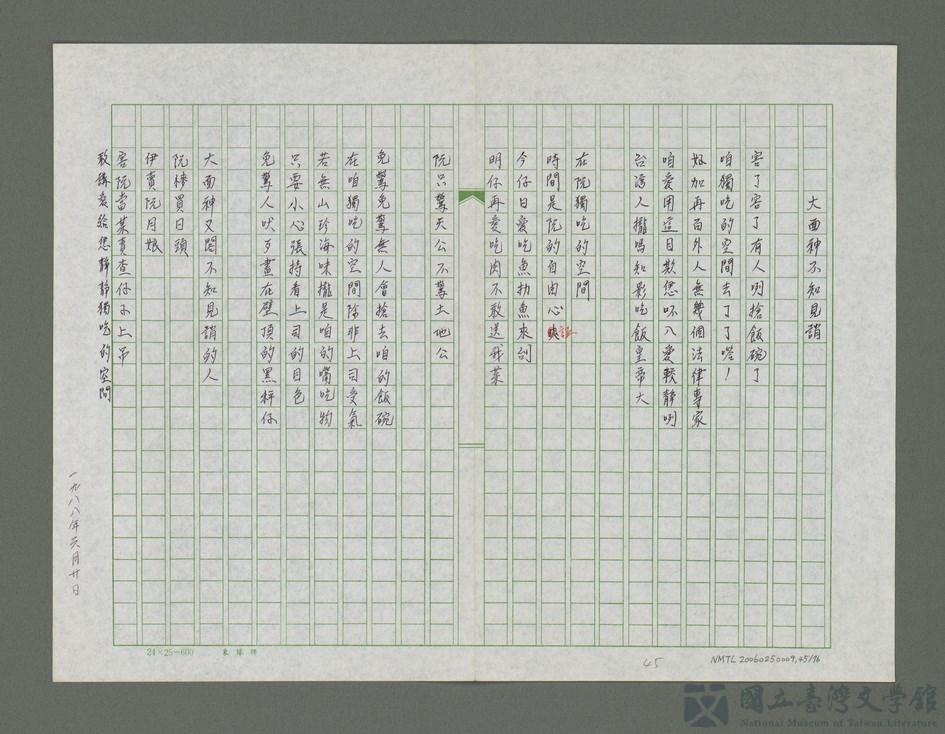 大面神不知見誚
害了害了有人明搶飯碗了
咱獨吃的空間去了了嗒！
奴加再百外人無幾個法律專家
咱愛用這目欺您呸八愛較靜咧
台灣人攏嗎知影吃飯皇帝大
在阮獨吃的空間
時間是阮的自由心
今仔日愛吃魚扐魚來刣
明仔再愛吃肉不敢送我菜
阮只驚天公不驚土地公
免驚免驚無人會搶去咱的飯碗
在咱獨吃的空間除非上司受氣
若無山珍海味攏是咱的嘴吃物
只要小心張持看上司的目色
免驚人吠歹畫在壁頂的黑秤仔
大面神又閣不知見誚的人
阮檢買日頭
伊賣阮月娘
害阮當某賣查仔子上吊
敢錄哀給您靜靜獨吃的空間
一九八八年六月廿日
24×25=600
45
NMTL 20060250009,45/96
國立臺灣文學館
National Museum of Taiwan Literature